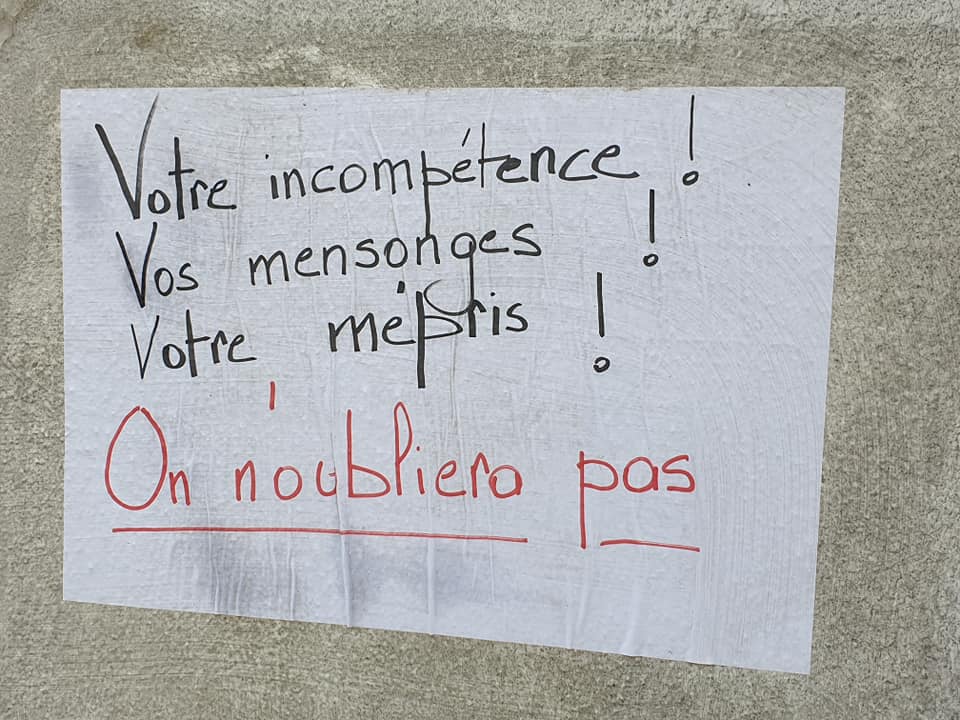 Votre incompétence !
Vos mensonges !
Votre mépris !
On n'oubliera pas